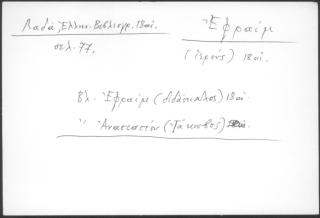 Λαδᾶ, Ἑλλην. Βιβλιογρ. 18 αἰ.
σελ. 77.
Ἐφραίμ
(ἱερεύς) 18 αἰ.
Βλ. Ἐφραίμ (διδάσκαλος) 18 αἰ.
" Ἀναστασίου (Ἰάκωβος)